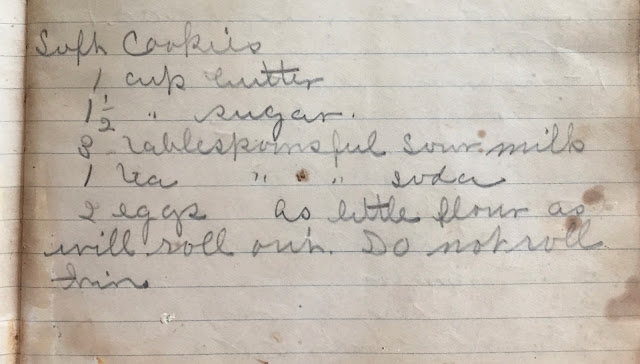 Soft Cookies
1 cup butter
1 1/2 " sugar.
8 tablespoonsful sour milk
1 tea " " soda
2 eggs as little flour as
will roll out. Do not roll
thin